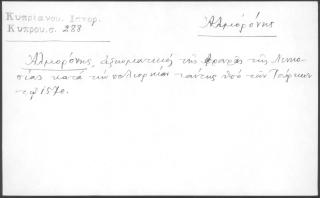 Κυπριανου. Ιστορ.
Κυπρου.σ. 288
Ἀλμορόνης
Ἀλμορόνης, ἀξιωματικός τῆς φρουρᾶς τῆς Λευκω-
σίας κατά τήν πολιορκίαν ταύτης ὑπό τῶν Τούρκων
τῷ 1570.